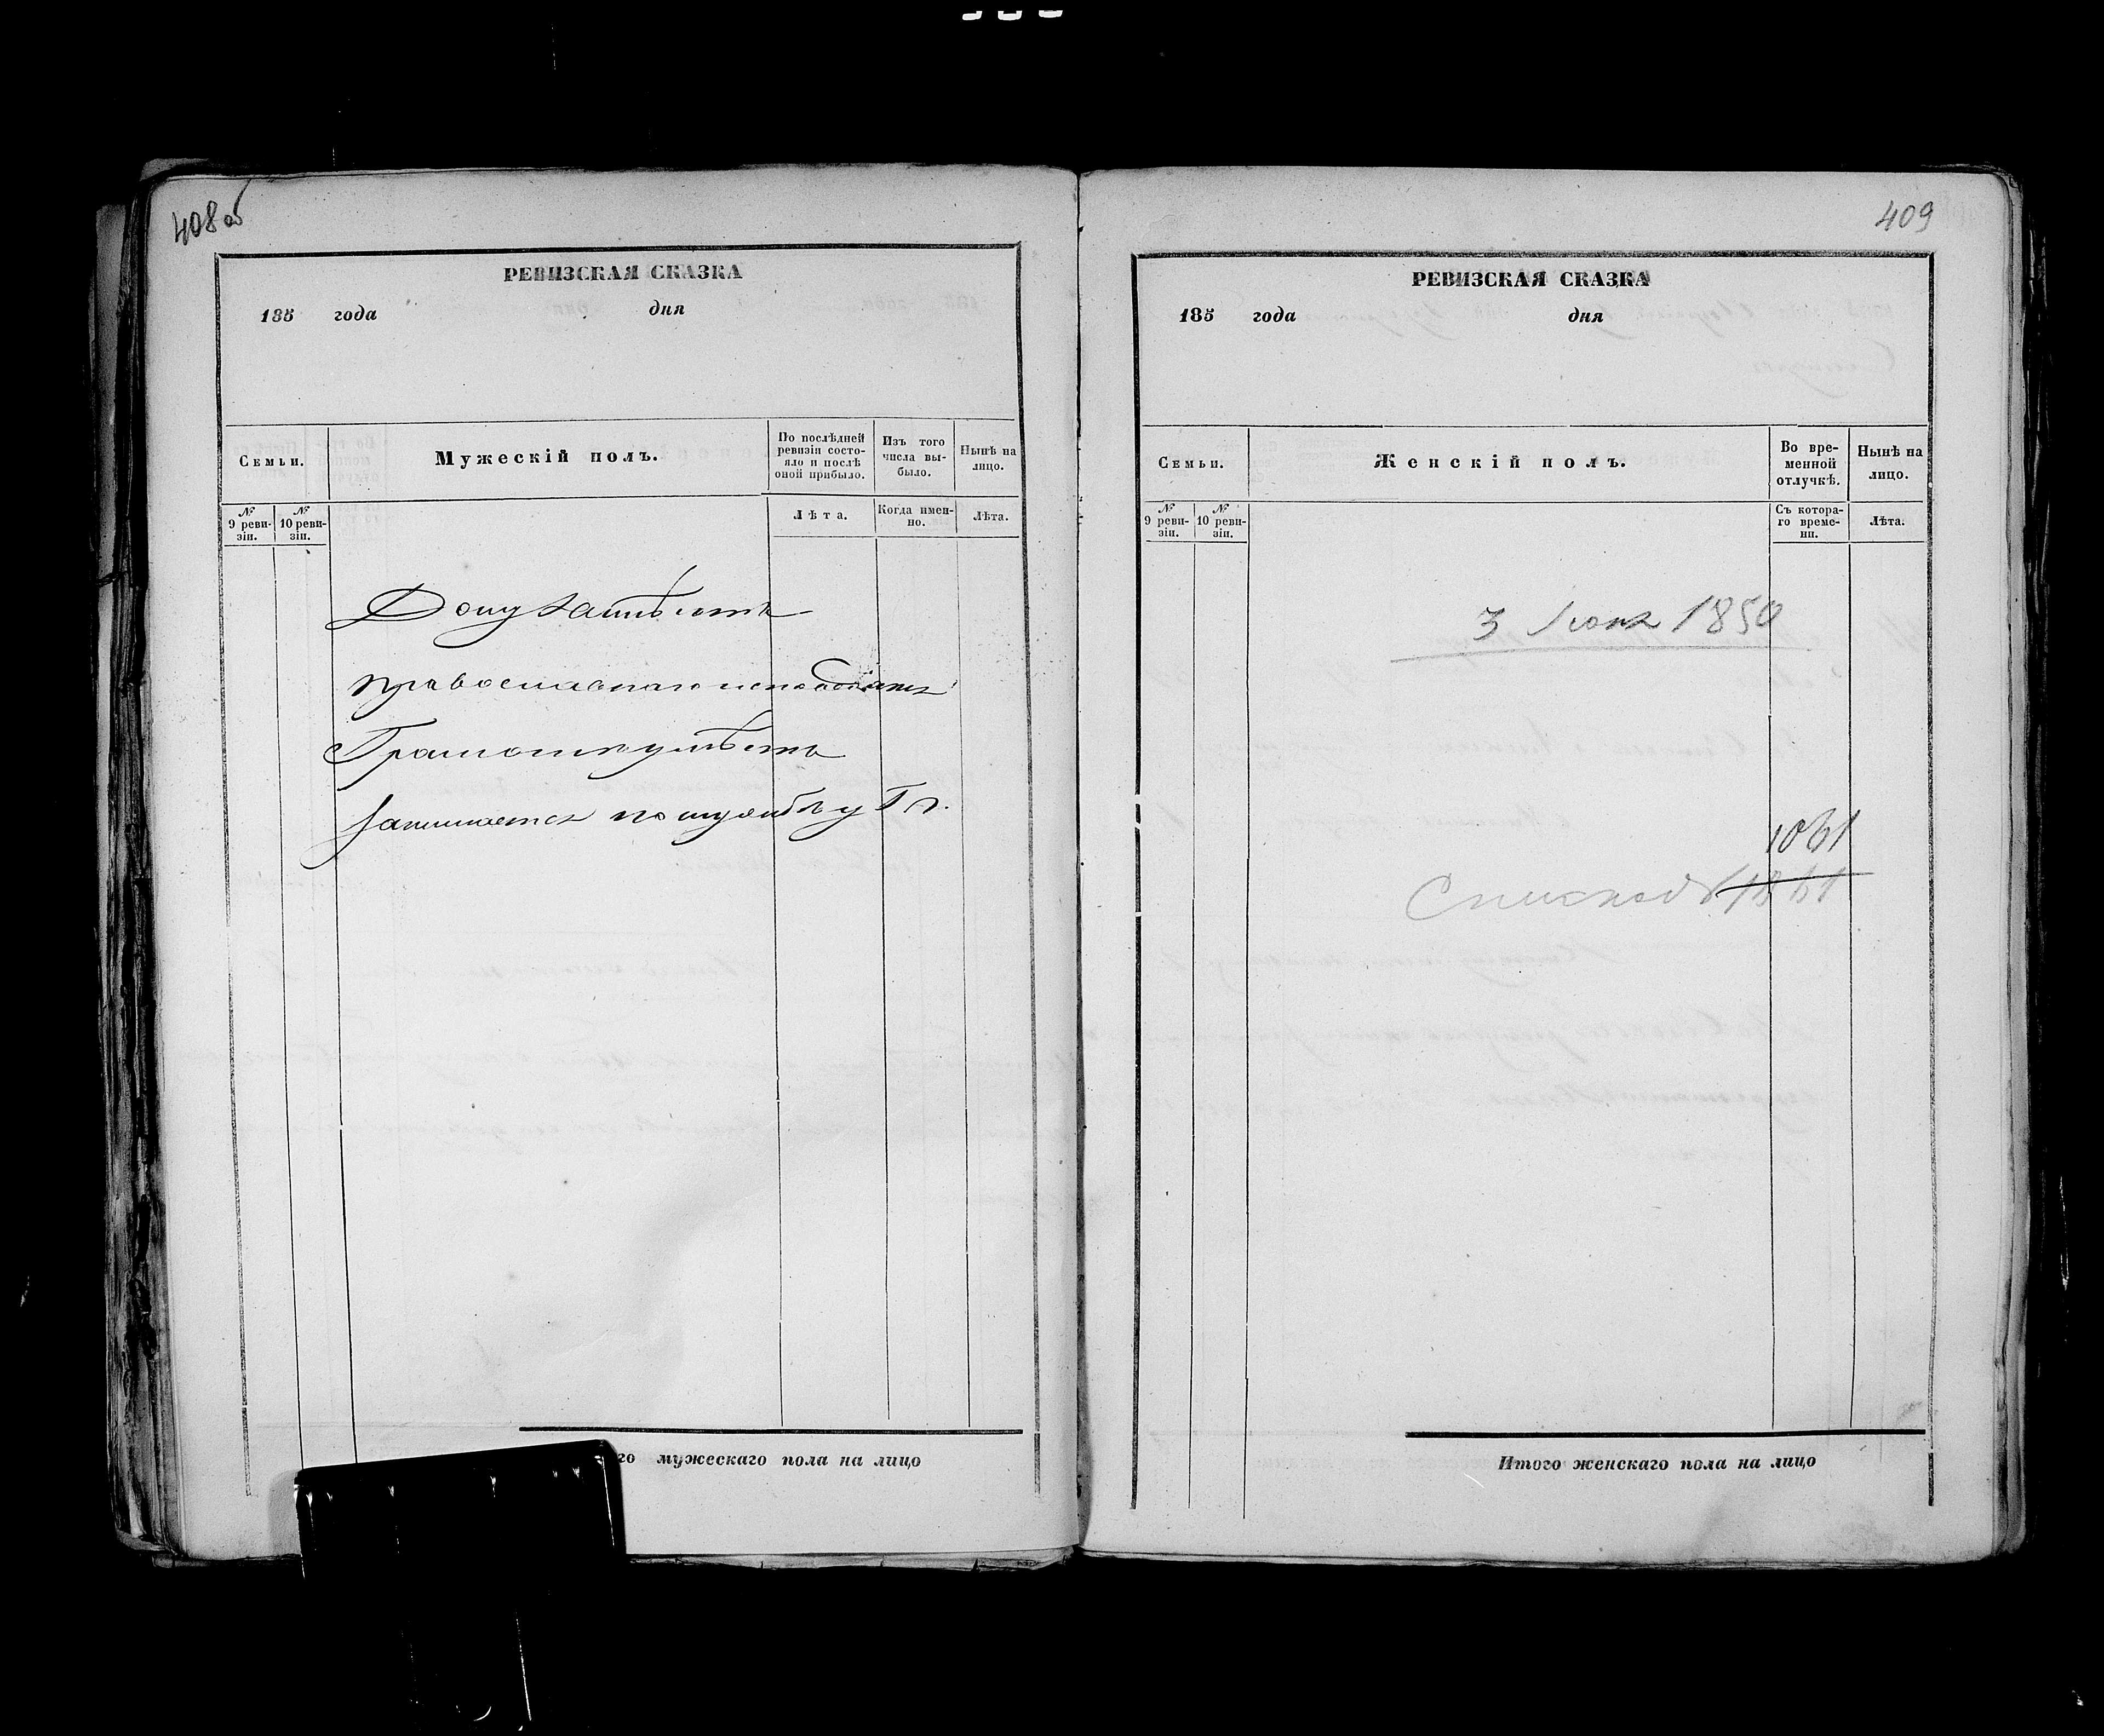 408об
РЕВИЗСКАЯ СКАЗКА
185 года дня
Семьи.
Мужескій полъ.
По послѣдней ревизіи состояло и послѣ оной прибыло.
Изъ того числа выбыло.
Нынѣ на лицо.
№ 9 ревизіи.
№ 10 ревизіи.
Лѣта.
Когда именно.
Лѣта.
Дому неимѣетъ
православнаго исповѣданія
Грамотѣ умѣетъ
Занимается по
мужескаго пола на лицо
409
РЕВИЗСКАЯ СКАЗКА
185 года дня
Семьи.
Женскій полъ.
Во временной отлучкѣ.
Нынѣ на лицо.
№ 9 ревизіи.
№ 10 ревизіи.
Съ котораго времени.
Лѣта.
3 Іюня 1850
1061
Списковъ
Итого женскаго пола на лицо